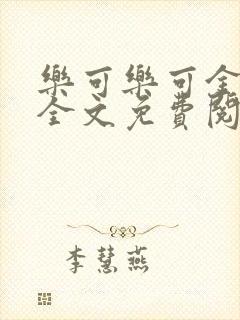 樂可樂可全
全文免費閱
李慧燕